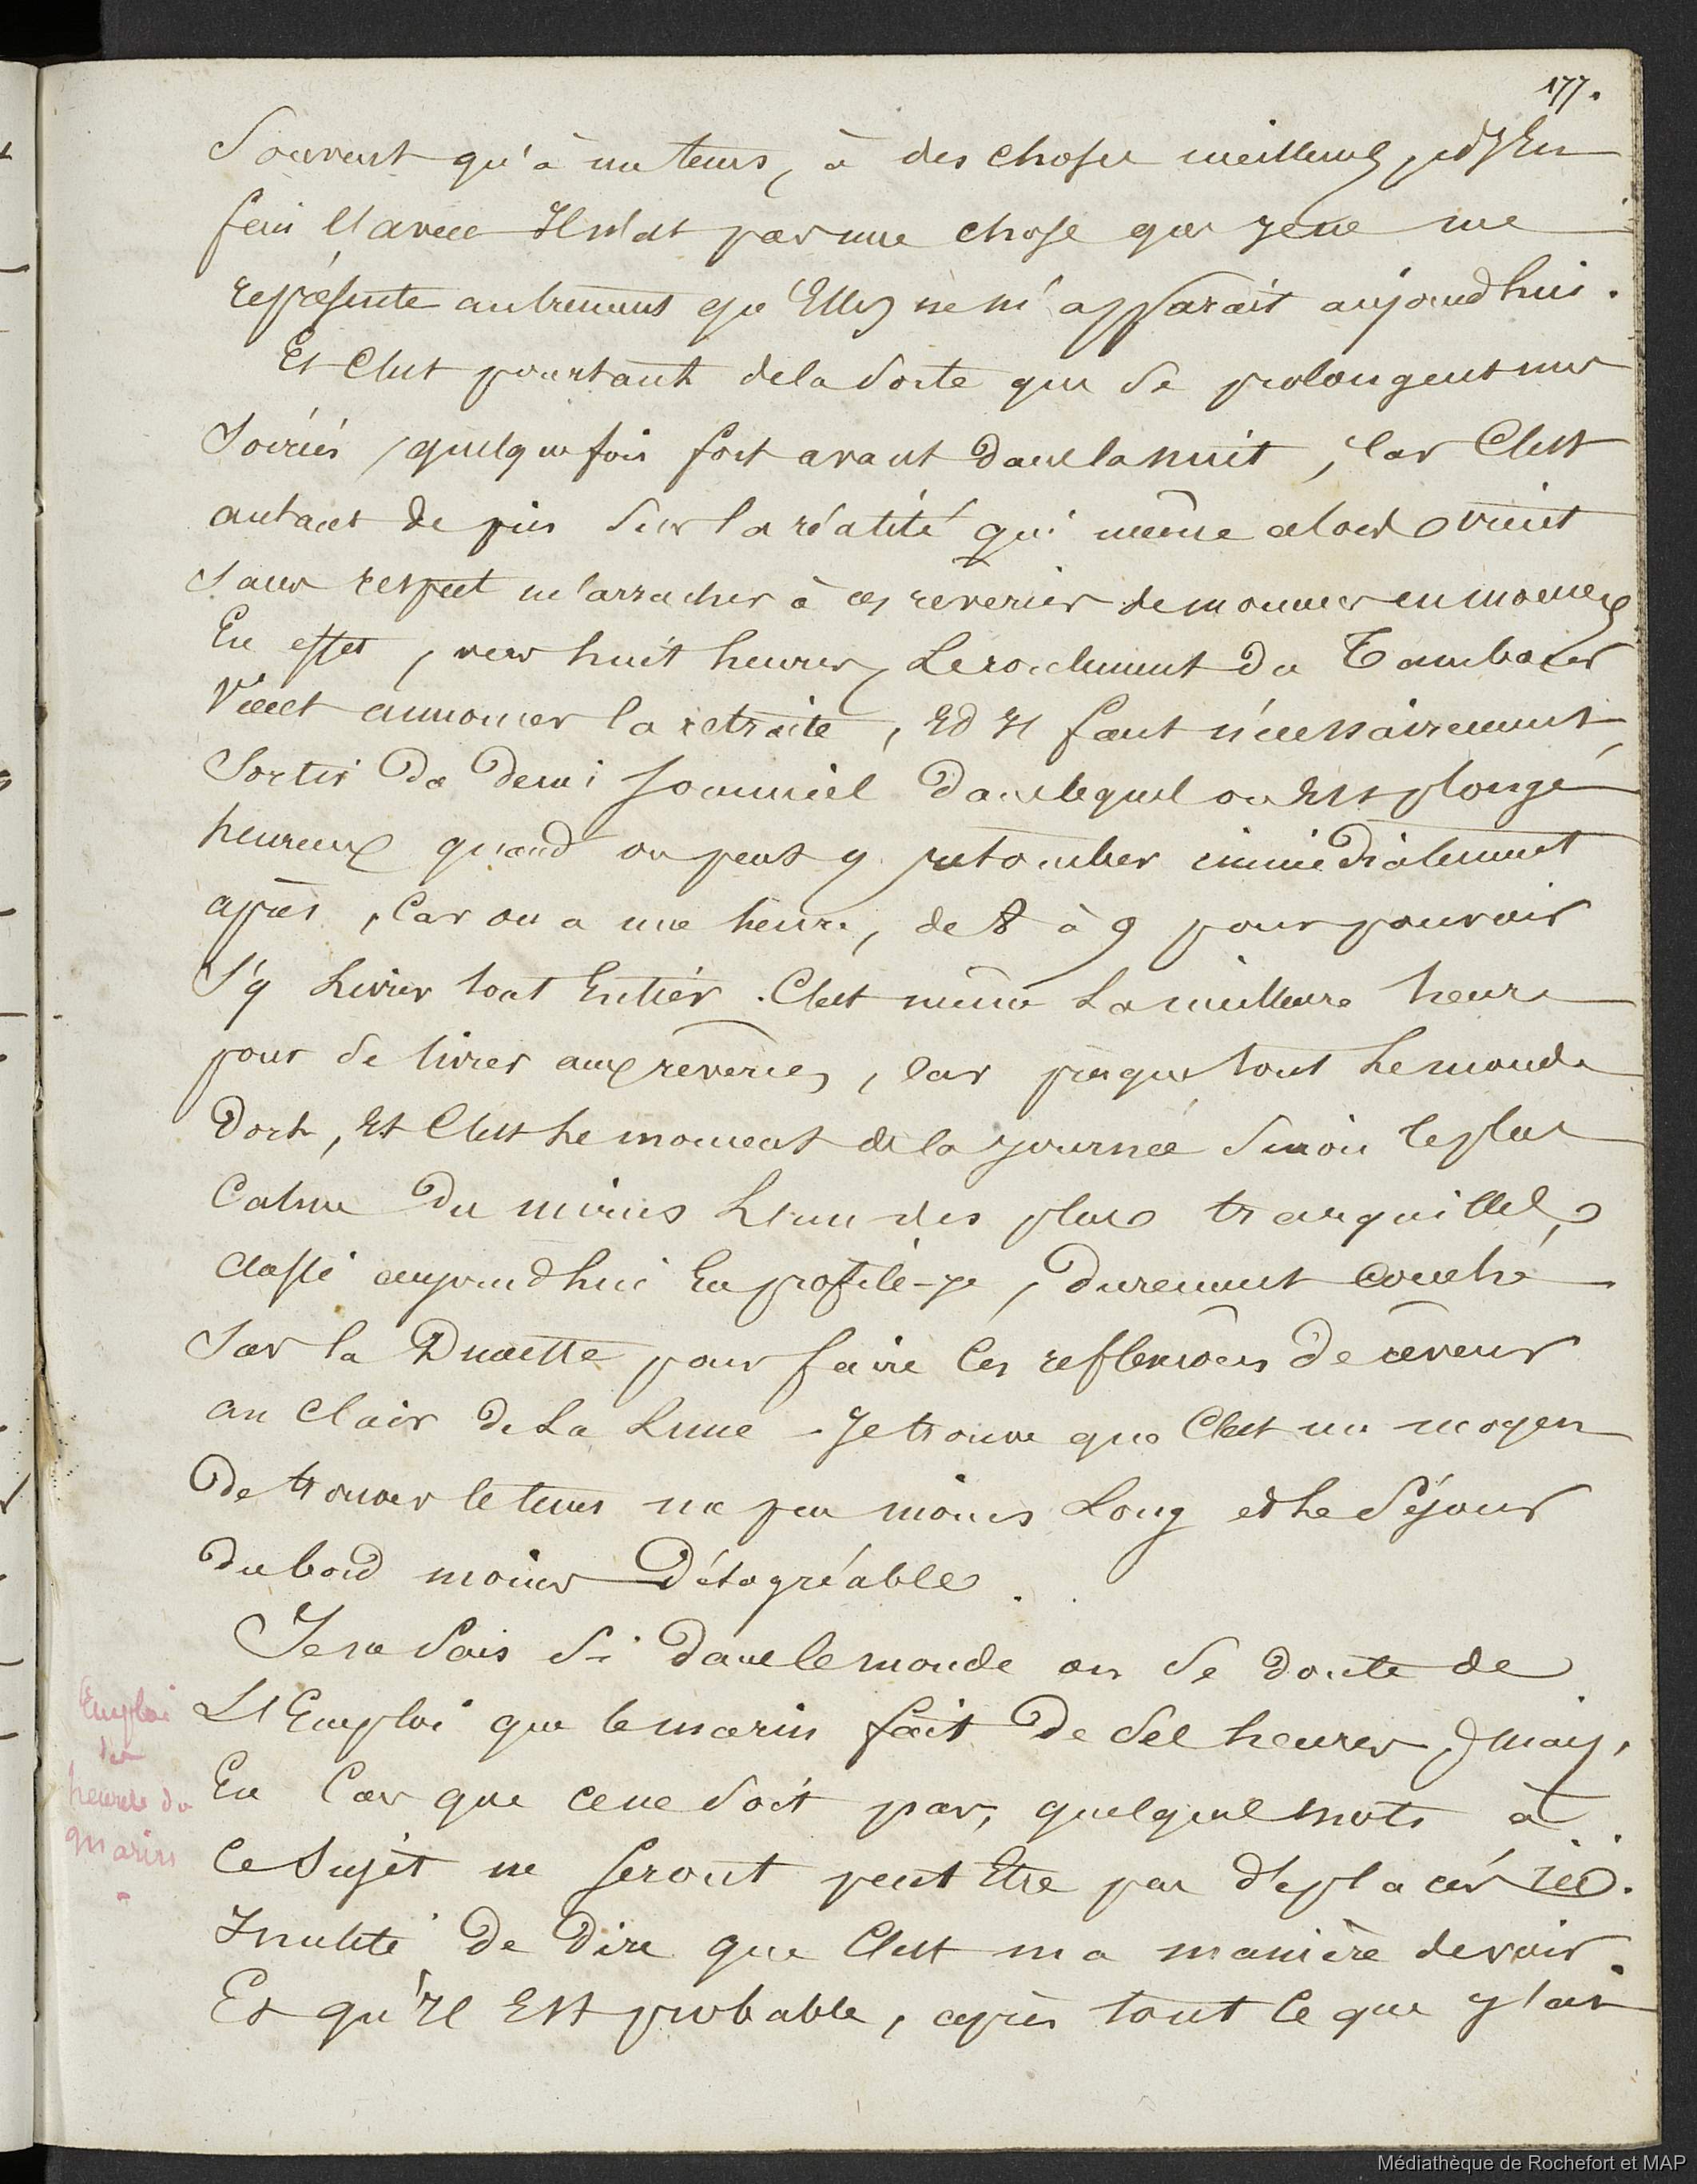 177.
Souvent qu'à un tems, à des choses meilleures, et En
fin l'avenir Il n'est pas une chose que je ne me
représente autrement qu'Elles ne m'apparait aujourd'hui.
Et C'est pourtant de la Sorte que Se prolongent mes
Soirées, quelquefois fort avant dans la nuit, Car C'est
autant de pris Sur la réalité qui même alors vient
Sans respect m'arracher à ces reveries de
En effet, vers huit heures, Le roulement du Tambour
Vient annoncer la retraite, Et Il faut nécessairement
Sortir du demi Sommeil Dans lequel on Est plongé
heureux quand on peut y retomber immédiatement
après, Car on a une heure, de 8 à 9 pour pouvoir
S'y Livrer tout Entier. C'est même La meilleure heure
pour Se livrer aux reveries, Car presque tout Le monde
Dort, Et C'est Le moment de la journée Sinon le plus
Calme Du moins L'un des plus tranquilles,
aussi aujourd'hui En profité-je, Durement couché
Sur la Dunette pour faire Ces reflexions De rêveur
au Clair de La Lune - Je trouve que C'est un moyen
De trouver le tems un peu moins Long et Le Séjour
Du bord moins Désagréable.
Je ne Sais Si Dans le monde on Se doute de
L'Emploi que le marin fait De Ses heures, mais,
En Cas que cene Soit pas, quelques mots à
Ce Sujet ne Seront peut Etre pas déplacés ici.
Inutile De Dire que C'est ma manière de voir
Et qu'Il Est probable, après tout Ce que j'ai
Emploi
des
heures du
marin
Médiathèque de Rochefort et MAP